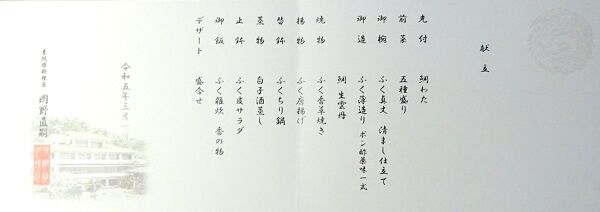 献立
先付 鯛わた
前菜 五種盛り
御椀 ふく真丈 清まし仕立て
御造 ふく薄造り ポン酢薬味一式
鯛 生雲丹
焼物 ふく香草焼き
揚物 ふく唐揚げ
皆鉢 ふくちり鍋
蒸物 白子酒蒸し
止鉢 ふく皮サラダ
御飯 ふく雑炊 香の物
デザート 盛合せ
令和五年三月一日
岡野直嗣